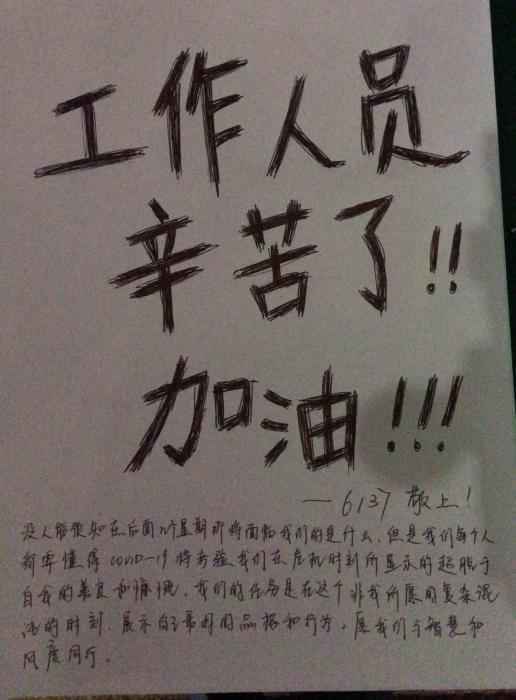 工作人员
辛苦了!!
加油!!!
—6137 敬上!
没人能预知在后面几个星期即将面临我们的是什么,但是我们每个人
都要懂得COVID-19将考验我们在危机时刻所显示的超脱于
自我的善良和慷慨。我们的任务是在这个非我所愿的复杂混
沌的时刻.展示自己最好的品格和行为。愿我们与智慧和
风度同行。